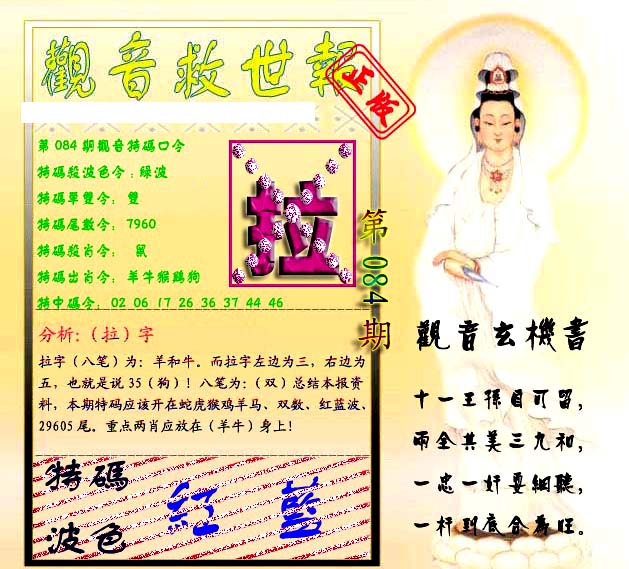 觀音救世報
正版
第 084 期觀音特碼口令
特碼殺波色令:綠波
特碼單雙令: 雙
特碼尾數令: 7960
特碼殺肖令: 鼠
特碼出肖令: 羊牛猴鷄狗
特中碼令: 02 06 17 26 36 37 44 46
拉
第 084 期
分析:(拉)字
拉字(八笔)为:羊和牛。而拉字左边为三,右边为
五,也就是说 35(狗)!八笔为:(双)总结本报资
料,本期特码应该开在蛇虎猴鸡羊马、双数、红蓝波、
29605 尾。重点两肖应放在(羊牛)身上!
特碼
波色
紅 藍
觀音玄機書
十一王孫自可留,
兩全其美三九和,
一忠一奸要細聽,
一杆到底合為旺。